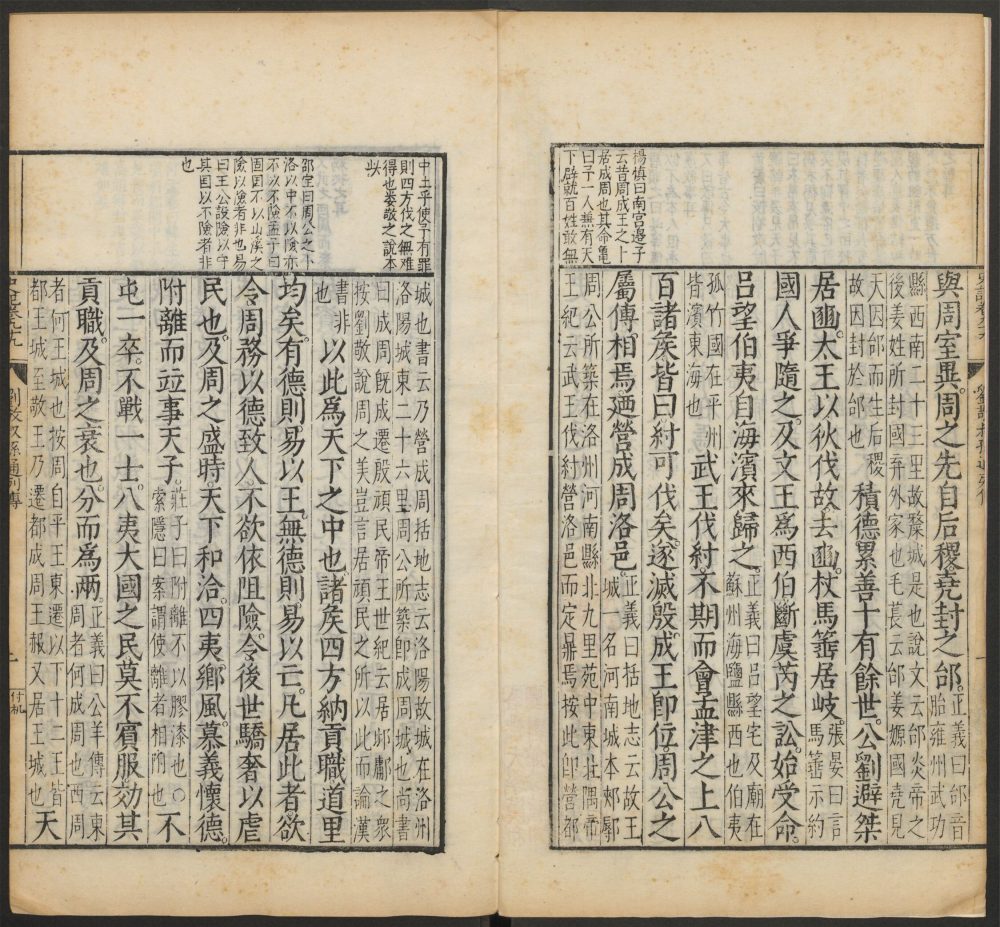 楊慎曰南宮邊子
云昔周成王之卜
居成周也其命龜
曰予一人兼有天
下辟就百姓敢無
與周室異。周之先自后稷。堯封之邰。正義曰邰音
胎雍州武功
縣西南二十三里故斄城是也說文云邰炎帝之
後姜姓所封國弃外家也毛萇云邰姜嫄國堯見
天因邰而生后稷
故因封於邰也
積德累善十有餘世。公劉避桀
居豳。太王以狄伐故去豳。杖馬箠居岐。張晏曰言
馬箠示約
國人爭隨之。及文王爲西伯。斷虞芮之訟。始受命。
呂望伯夷自海濱來歸之。正義曰呂望宅及廟在
蘇州海鹽縣西也伯夷
孤竹國在平州
皆濱東海也
武王伐紂。不期而會孟津之上八
百諸矦皆曰紂可伐矣。遂滅殷。成王卽位。周公之
屬傅。相焉廼營成周洛邑。正義曰括地志云故王
城一名河南城本郟鄏
周公所築在洛州河南縣北九里苑中東北隅帝
王紀云武王伐紂營洛邑而定鼎焉按此卽營都
中土乎使予有罪
則四方伐之無难
得也婁敬之說本
此
邵宝曰周公之卜
洛以中不以險亦
不以不險孟子曰
固国不以山溪之
險以險者非也易
曰王公設險以守
其国以不險者非
也
城也書云乃營成周括地志云洛陽故城在洛州
洛陽城東二十六里周公所築卽成周城也尚書
曰成周旣成遷殷頑民帝王世紀云居邶鄘之衆
按劉敬說周之美豈言居頑民之所以此而論漢
書非
也
以此爲天下之中也諸矦四方納貢職道里
均矣。有德則易以王。無德則易以亡。凡居此者欲
令周務以德致人不欲依阻險。令後世驕奢以虐
民也。及周之盛時。天下和洽。四夷鄉風。慕義懷德。
附離而竝事天子。莊子曰附離不以膠漆也〇
索隱曰案謂使離者相附也
不
屯一卒。不戰一士。八夷大國之民莫不賓服効其
貢職。及周之衰也。分而爲兩。正義曰公羊傳云東
周者何成周也西周
者何王城也按周自平王東遷以下十二王皆
都王城至敬王乃遷都成周王赧又居王城也
天